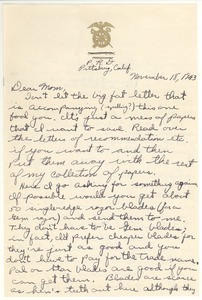 Pittsburg, Calif.
November 18, 1943
Dear Mom,
Don't let the big fat letter that
is accompanying (spelly?) this one
fool you. It's just a mess of papers
that I want to save. Read over
the letters of recommendation etc.
if you want to and then
put them away with the rest
of my collection of papers.
Here I go asking for something again.
If possible would you get about
50 single edge razor blades (for
Gem razor) and send them to me.
They don't have to be Gem blades;
in fact, I'd prefer cheaper blades for
they're just as good and you
don't have to pay for the trade name.
Pal or Star blades are good if you
can get them. Blades are scarce
as hen's teeth out here although they